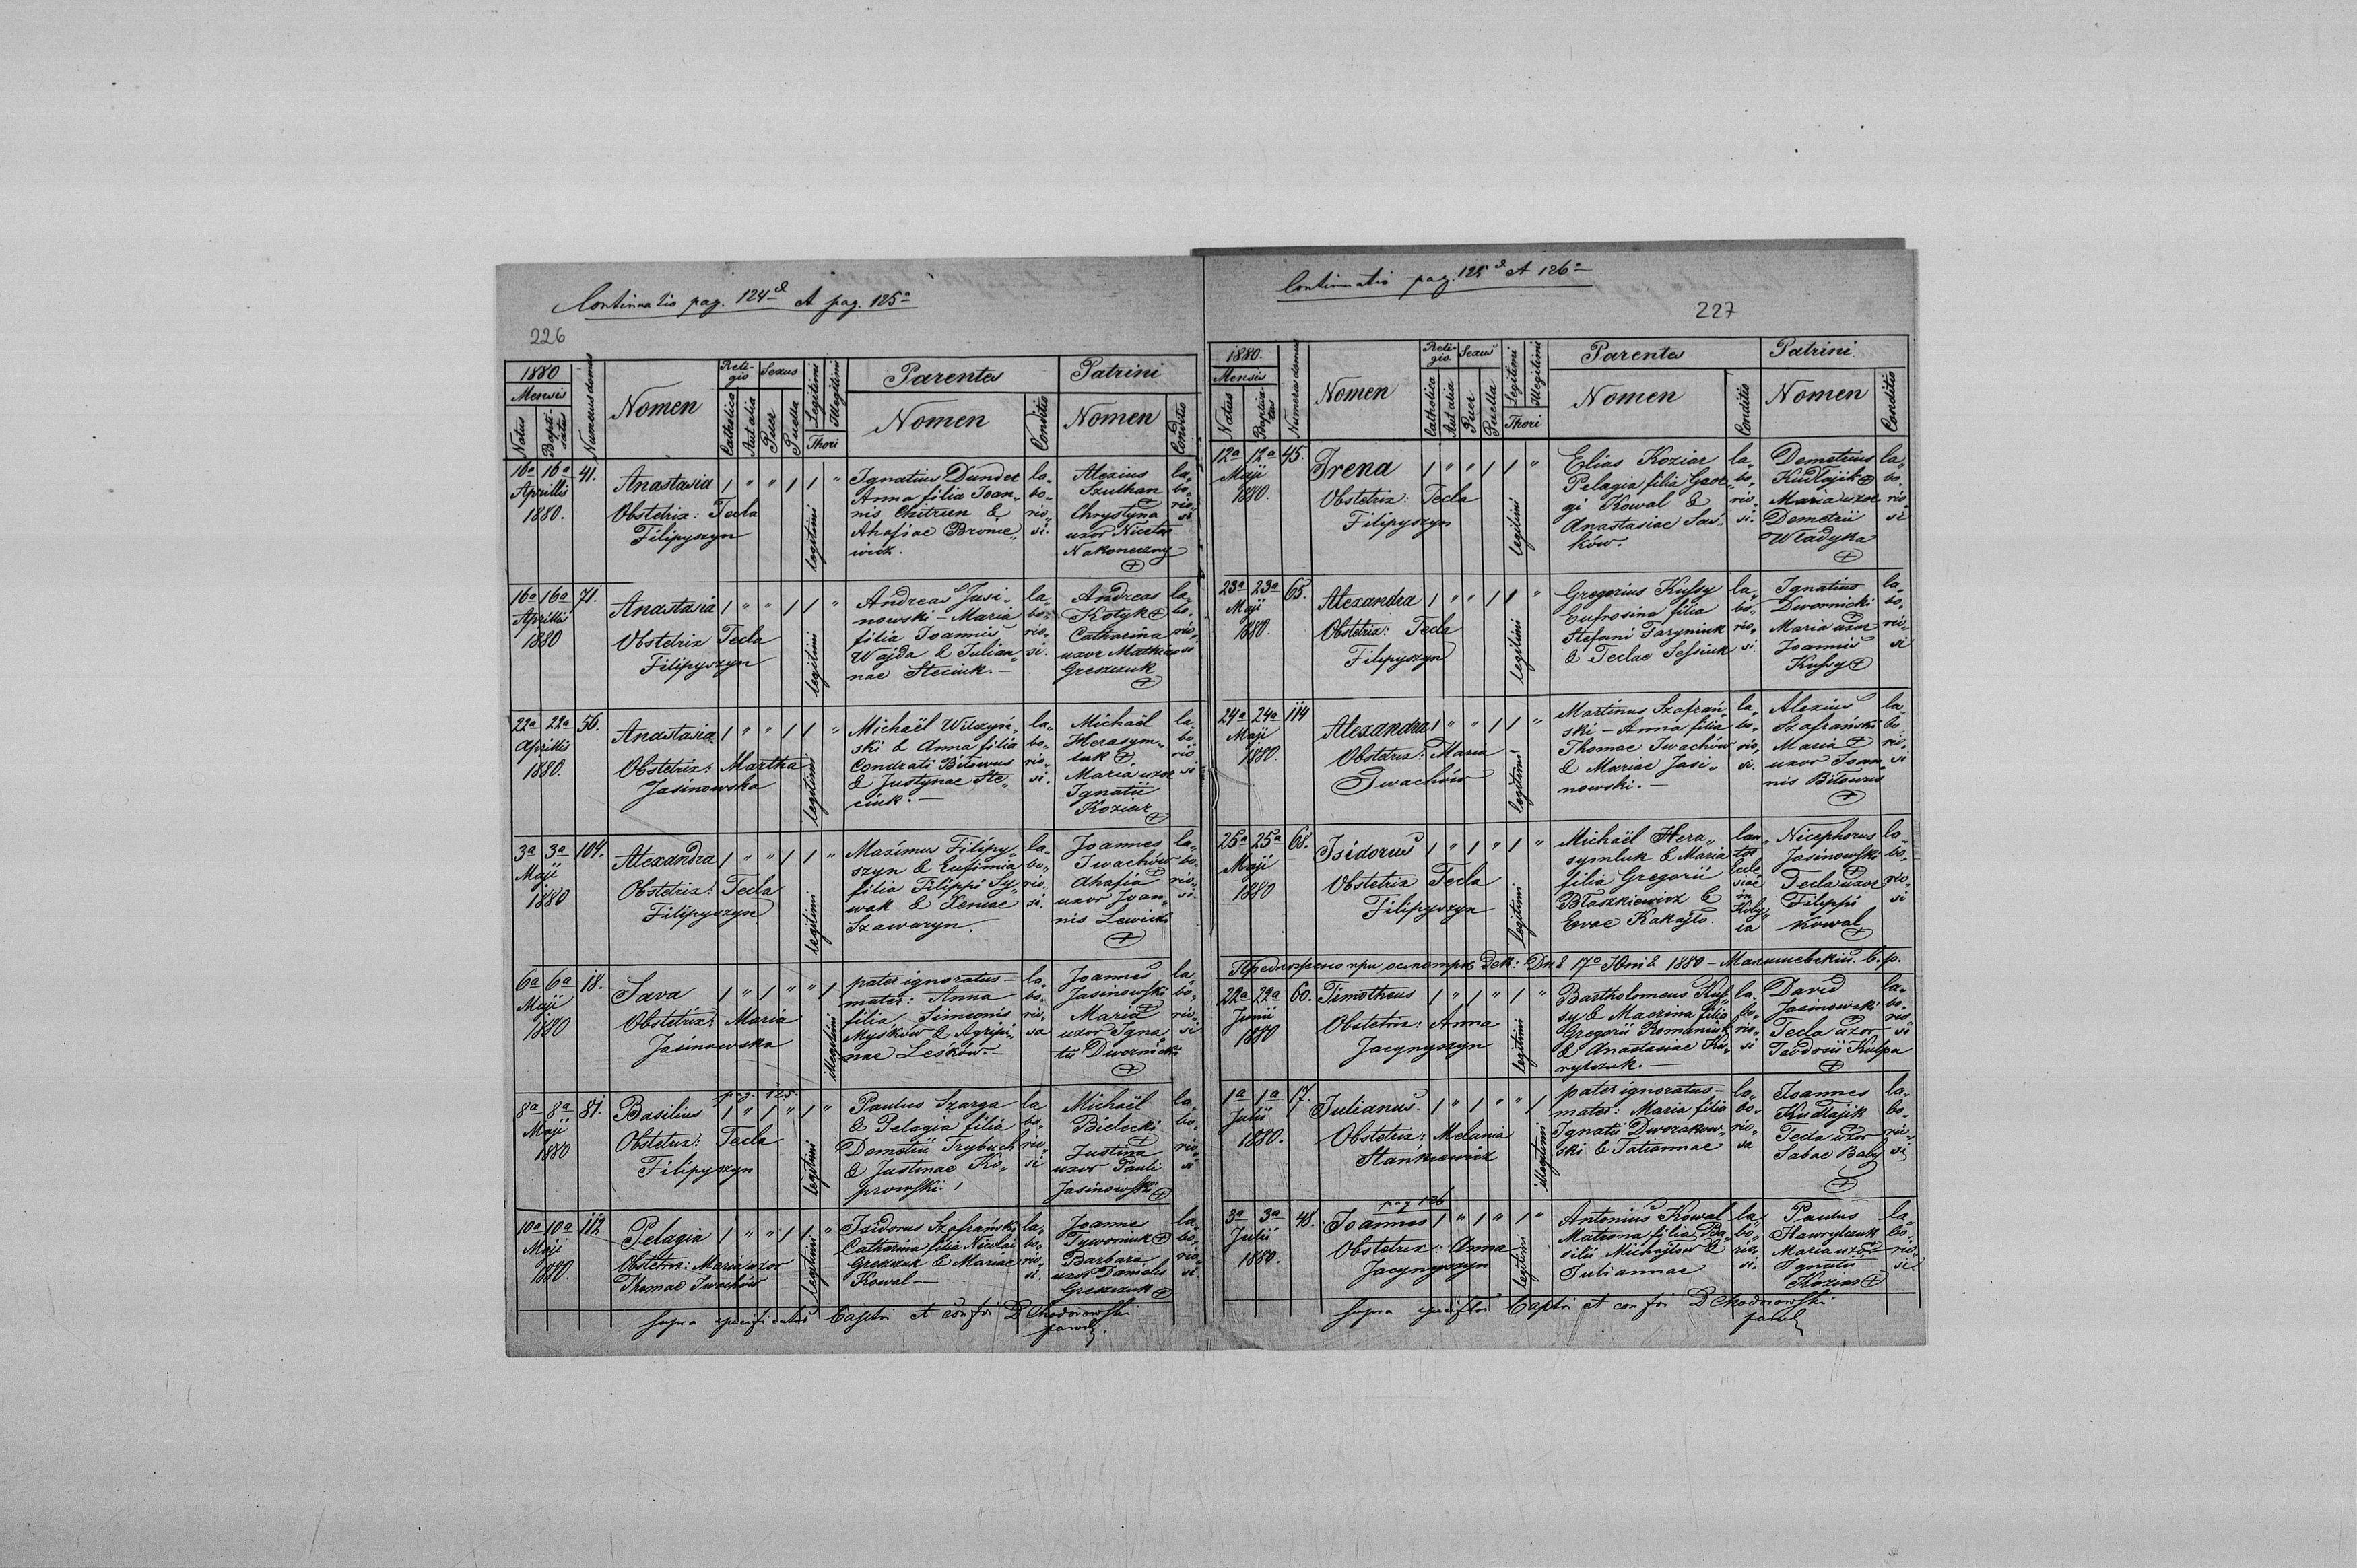 Continuatio pag. 124 et pag. 125
226
1880
Mensis
Natus
Bapti-
satus
Numerus domus
Nomen
Reli-
gio
Catholica
Aut alia
Sexus
Puer
Puella
Legitimi
Illegitimi
Thori
Parentes
Nomen
Conditio
Patrini
Nomen
Conditio
16a 16a 41.
Aprillis
1880.
Anastasia 1 " " 1 1 "
Obstetrix: Tecla
Filipyszyn
legitimi
Ignatius Dunder
Anna filia Joan„
nis &
Ahafiae Bronie„
wicz.
la„
bo„
rio„
si.
Alexius
Szulhan
Chrystyna
uxor Nicetae
Nakoneczny
la„
bo„
rio„
si
16a 16a 71.
Aprillis
1880
Anastasia 1 " " 1 1 "
Obstetrix Tecla
Filipyszyn
legitimi
Andreas Jasi„
nowski – Maria
filia Joannis
Wajda & Julian„
nae Steciuk. –
la„
bo„
rio„
si.
Andreas
Kotyk
Catharina
uxor Mathiae
Greszczuk
la„
bo„
rio„
si
22a 22a 56.
Aprillis
1880.
Anastasia 1 " " 1 1 "
Obstetrix: Martha
Jasinowska
legitimi
Michaël Wilczyń„
ski & Anna filia
Condrati Biłowus
& Justynae Ste„
ciuk. –
la„
bo„
rio„
si.
Michaël
Herasym„
luk
Maria uxor
Ignatii
Koziar
la„
bo„
rio
si
3a 3a 104.
Maji
1880
Alexandra 1 " " 1 1 "
Obstetrix: Tecla
Filipyszyn
legitimi
Maximus Filipy„
szyn & Eufimia
filia Filippi Sy„
wak & Xeniae
Szawaryn.
la„
bo„
rio„
si.
Joannes
Iwachów
Ahafia
uxor Joan„
nis Lewicki
la„
bo„
rio„
si.
6a 6a 18.
Maji
1880
Sava 1 " 1 " " 1
Obstetrix: Maria
Jasinowska
illegitimi
pater ignoratus –
mater: Anna
filia Simeonis
Myśków & Agripi„
nae Leśków. –
la„
bo„
rio„
sa
Joannes
Jasinowski
Maria
uxor Igna
tii Dwornicki
la„
bo„
rio„
si
pag. 125.
8a 8a 81.
Maji
1880
Basilius 1 " 1 " 1 "
Obstetrix: Tecla
Filipyszyn
legitimi
Paulus Szarga
& Pelagia filia
Demetrii Trybuch
& Justinae Ko„
prowski.
la
bo„
rio„
si
Michaël
Bielecki
Justina
uxor Pauli
Jasinowski
la„
bo„
rio„
si
10a 10a 112
Maji
1880.
Pelagia 1 " " 1 1 "
Obstetrix: Maria uxor
Thomae Iwachów
legitimi
Isidorus Szafrański
Catharina filia Nicolai
Greszczuk & Mariae
Kowal –
la„
bo„
rio„
si.
Joannes
Tyworniuk
Barbara
uxor Danielis
Greszczuk
la„
bo„
rio„
si.
Supra specificatos et D Chodorowski
Continuatio pag. 125 et 126
227
1880.
Mensis
Natus
Baptiza-
tus
Numerus domus
Nomen
Reli-
gio.
Catholica
Aut alia
Sexus
Puer
Puella
Legitimi
Illegitimi
Thori
Parentes
Nomen
Conditio
Patrini
Nomen
Conditio
12a 12a 45.
Maji
1880.
Irena 1 " " 1 1 "
Obstetrix: Tecla
Filipyszyn
legitimi
Elias Koziar
Pelagia filia Geor„
gi Kowal &
Anastasiae Saś„
ków.
la„
bo„
rio„
si.
Demetrius
Kudłajik
Maria uxor
Demetrii
Władyka
la„
bo„
rio„
si
23a 23a 65.
Maji
1880.
Alexandra 1 " " 1 1 "
Obstetrix: Tecla
Filipyszyn
legitimi
Gregorius Kussy
Eufrosina filia
Stefani Taryniuk
& Teclae Sessiuk
la„
bo„
rio„
si
Ignatius
Dwornicki
Maria uxor
Joannis
Kussy
la„
bo„
rio„
si
24a 24a 114
Maji
1880.
Alexandra 1 " " 1 1 "
Obstetrix: Maria
Iwachów
legitimi
Martinus Szafrań„
ski – Anna filia
Thomae Iwachów
& Mariae Jasi„
nowski. –
la„
bo„
rio„
si.
Alexius
Szafrański
Maria
uxor Joan„
nis Biłowus
la„
bo„
rio„
si
25a 25a 68.
Maji
1880
Isidorus 1 " 1 " 1 "
Obstetrix Tecla
Filipyszyn
legitimi
Michaël Hera„
symluk & Maria
filia Gregorii
Błaszkiewicz &
Evae Kakajło.
can„
tor
Eccle
siae
in
Koby„
la
Nicephorus
Jasinowski
Tecla uxor
Filippi
Kowal
la„
bo„
rio„
si
Предложено при осмотрѣ Дек: Дня 17го Юнія 1880 – Малишевскій. С. р.
22a 22a 60.
Junii
1880
Timotheus 1 " 1 " 1 "
Obstetrix: Anna
Jacynyszyn
legitimi
Bartholomeus Kus„
sy & Macrina filia
Gregorii Romaniuk
& Anastasiae Ha„
rylczuk. –
la„
bo„
rio„
si
David
Jasinowski
Tecla uxor
Teodosii Kulpa
la„
bo„
rio„
si
1a 1a 17.
Julii
1880.
Julianus. 1 " 1 " " 1
Obstetrix: Melania
Stankiewicz
illegitimi
pater ignoratus –
mater: Maria filia
Ignatii Dworakow„
ski & Tatiannae
la„
bo„
rio„
sa
Joannes
Kudłajik
Tecla uxor
Sabae Baby
la„
bo„
rio„
si
pag 126
3a 3a 48.
Julii
1880.
Joannes 1 " 1 " 1 "
Obstetrix: Anna
Jacynyszyn
legitimi
Antonius Kowal
Matrona filia Ba„
silii Michajlow &
Juliannae
la„
bo„
rio„
si.
Paulus
Hawrylczuk
Maria uxor
Ignatii
Koziar
la„
bo„
rio„
si.
Supra et D Chodorowski